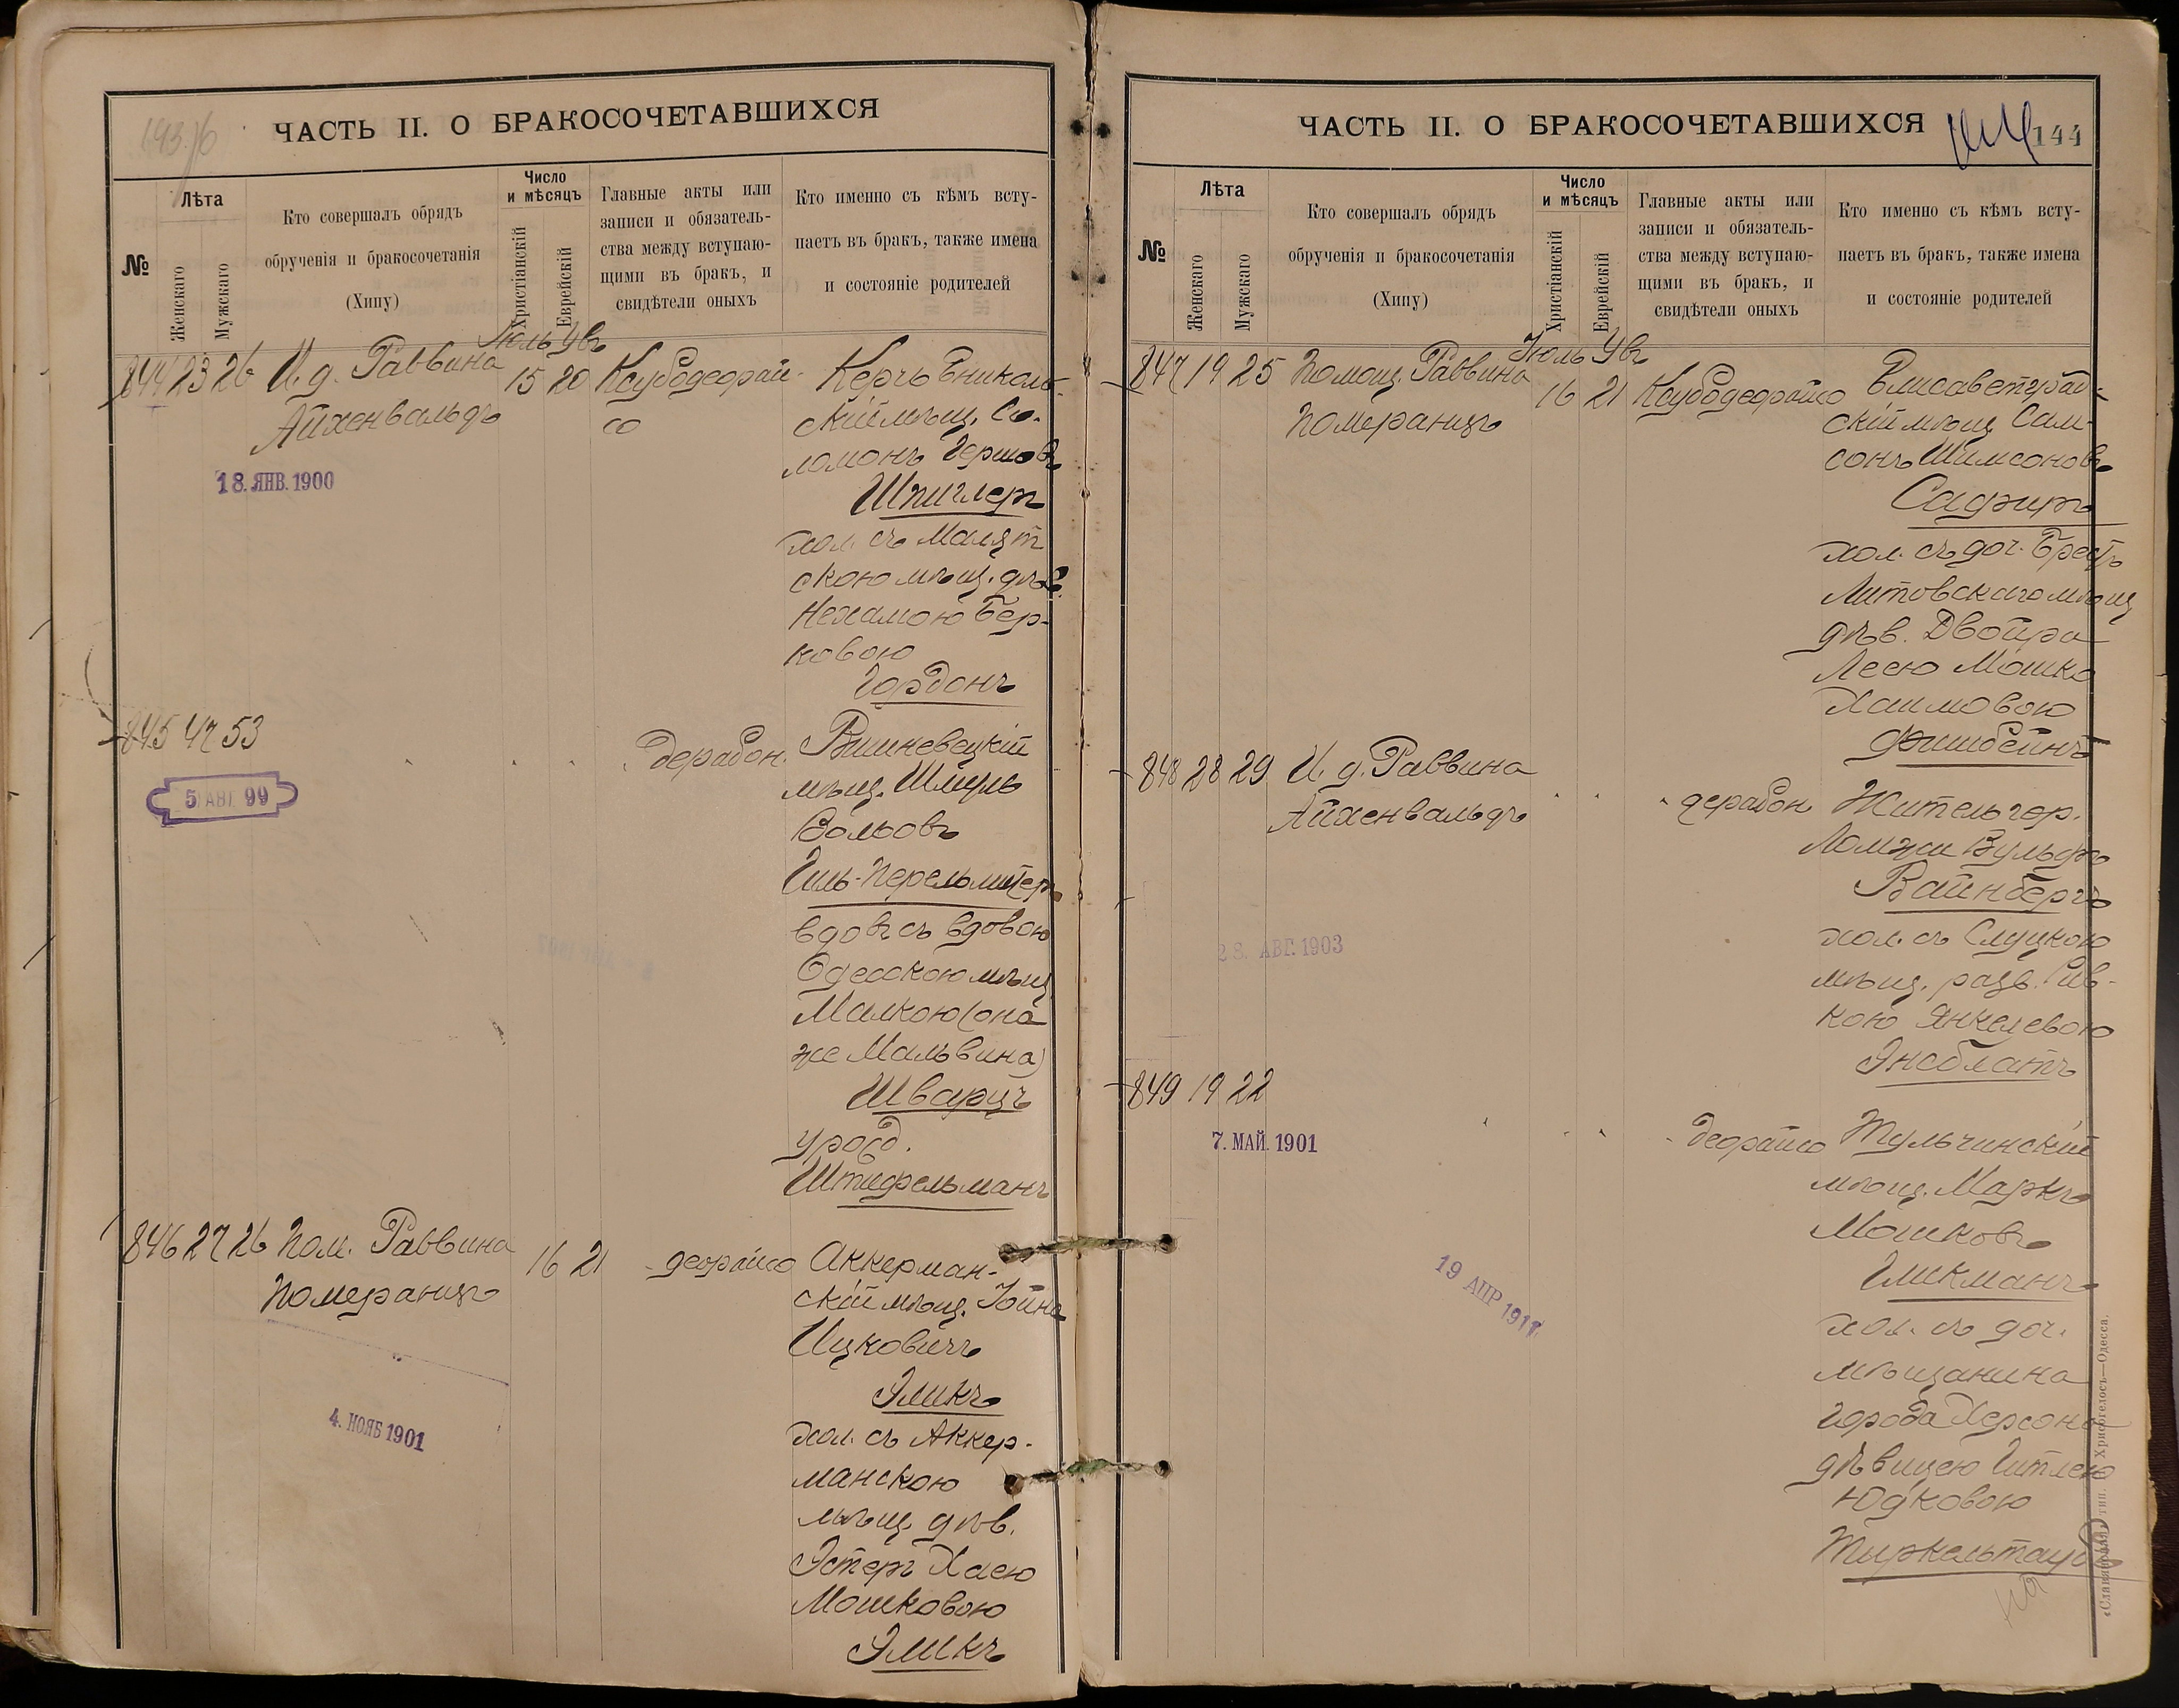 ЧАСТЬ II. О БРАКОСОЧЕТАВШИХСЯ
№
Лѣта
Женскаго
Мужскаго
Кто совершалъ обрядъ
обрученія и бракосочетанія
(Хипу)
Число
и мѣсяцъ
Христіанскій
Еврейскій
Главные акты или
записи и обязатель-
ства между вступаю-
щими въ бракъ, и
свидѣтели оныхъ
Кто именно съ кѣмъ всту-
паетъ въ бракъ, также имена
и состояніе родителей
844 23 26 И. д. Раввина
Айхенвальдъ
Іюль
15 20
18. ЯНВ. 1900
Керчь Ениколь-
скій мѣщ. Со-
ломонъ Гершовъ
Шпиглеръ
хол. съ Малят
скою мѣщ. дѣв.
Нехамою Бер-
ковою
Гордонъ
845 47 53
5 АВГ. 99
дерабон.
Вишневецкій
мѣщ. Шмуль
Вольовъ
Гиль-Перельмитеръ
вдов. съ вдовою
Одесскою мѣщ.
Малкою (она
же Мальвина)
Шварцъ
урожд.
Штифельманъ
846 27 26 Пом. Раввина
Померанцъ
16 21
деорайсо
4. НОЯБ 1901
Аккерман-
скій мѣщ. Іойна
Ицковичъ
Эликъ
хол. съ Аккер-
манскою
мѣщ. дѣв.
Эстеръ Хаею
Мошковою
Эликъ
ЧАСТЬ II. О БРАКОСОЧЕТАВШИХСЯ
144
№
Лѣта
Женскаго
Мужскаго
Кто совершалъ обрядъ
обрученія и бракосочетанія
(Хипу)
Число
и мѣсяцъ
Христіанскій
Еврейскій
Главные акты или
записи и обязатель-
ства между вступаю-
щими въ бракъ, и
свидѣтели оныхъ
Кто именно съ кѣмъ всту-
паетъ въ бракъ, также имена
и состояніе родителей
847 19 25 Помощ. Раввина
Померанцъ
Іюль
16 21
Елисаветград-
скій мѣщ. Сам-
сонъ Шимсоновъ
Сафиръ
хол. съ доч. Брестъ
Литовскаго мѣщ
дѣв. Двойра
Леею Мошко
Хаимовою
Фишбейнъ
848 28 29 И. д. Раввина
Айхенвальдъ
дерабон
Житель гор.
Ломжи Вульфъ
Вайнбергъ
хол. съ Слуцкою
мѣщ. разв. Рив-
кою Янкелевою
Энсблатъ
28. АВГ. 1903
849 19 22
7. МАЙ. 1901
деорайсо
Тульчинскій
мѣщ. Маркъ
Мошковъ
Гликманъ
хол. съ доч.
мѣщанина
города Херсона
дѣвицею Гитлею
Юдковою
Тыркельтаубъ
19 АПР 1911
«Славянская» тип. Н. Хрисогелосъ—Одесса.